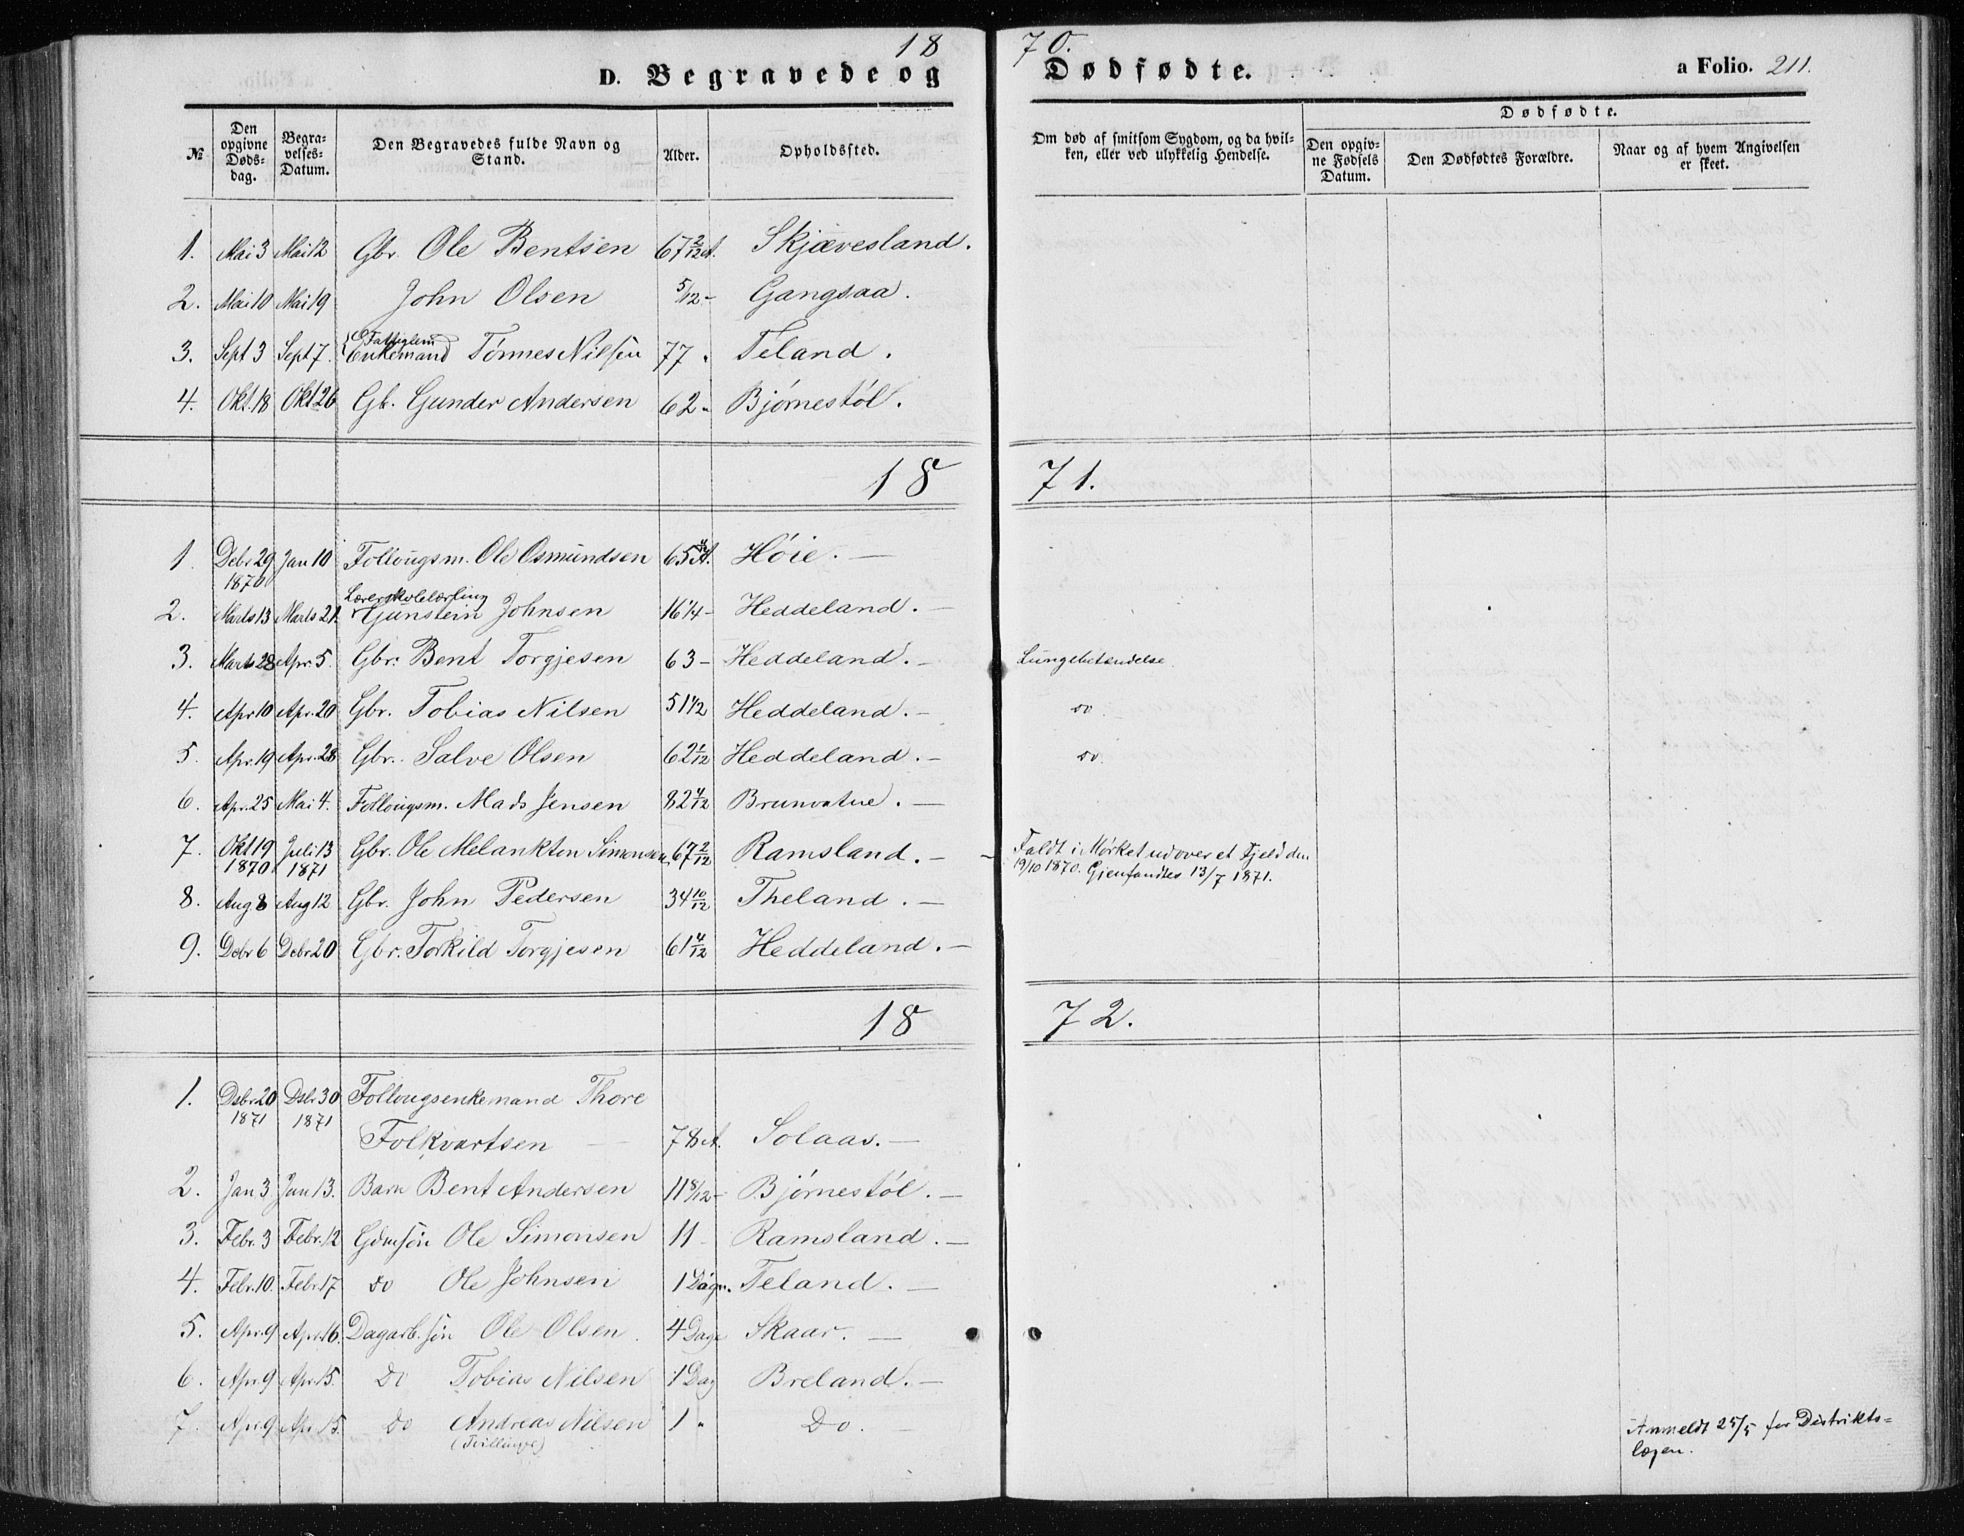 1870.
D. Begravede og Dødfødte. a Folio. 211.
Dødfødte.
№ Den opgivne Døds-dag. Begra-velses-Datum. Den Begravedes fulde Navn og Stand. Alder. Opholdssted. Om død af smitsom Sygdom, og da hvil-ken, eller ved ulykkelig Hendelse. Den opgiv-ne Fødsels Datum. Den Dødfødtes Forældre. Naar og af hvem Angivelsen er skeet.
1. Mai 3 Mai 12 Gbr. Ole Bentsen 67 2/12 A. Skjævesland.
2. Mai 10 Mai 19 John Olsen 5/12 - Gangsaa.
3. Sept 3 Sept 7. Fattiglem Enkemand Tønnes Nilsen 77 " Teland.
4. Okt. 18 Okt 26 Gb. Gunder Andersen 62 - Bjørnestøl.
1871.
1. Debr 29 1870. Jan 10 Follougsm. Ole Osmundsen 65 A. Høie. —
2. Marts 13 Marts 21. Lærerskolelærling Gunstein Johnsen 16 1/4 - Heddeland. —
3. Marts 28 Apr. 5. Gbr: Bent Torgjesen 63 - Heddeland. — Lungebetændelse
4. Apr 10 Apr. 20 Gbr. Tobias Nilsen 51 1/2 Heddeland. — do.
5. Apr. 19 Apr. 28 Gbr. Salve Olsen 62 1/12 Heddeland. — do.
6. Apr. 25 Mai 4. Follougsm. Mads Jensen 82 4/12 Brunvatne. —
7. Okt 19 1870 Juli 13 1871 Gbr. Ole Melankton Simonsen 67 2/12 Ramsland. — Faldt i Mørket udover et Fjeld den
19/10 1870. Gjenfandtes 13/7 1871.
8. Aug 8 Aug 12 Gbr. John Pedersen 34 10/12 Theland. —
9. Debr 6 Debr 20 Gbr. Torkild Torgjesen 61 4/12 Heddeland. —
1872.
1. Dsbr 20 1871 Dsbr 30 1871 Follougsenkemand Thore
Folkvartsen — 78 A. Solaas. —
2. Jan 3 Jan 13. Barn Bent Andersen 11 8/12 - Bjørnestøl. —
3. Febr. 3 Febr. 12 Gdmsøn Ole Simonsen 11 - Ramsland. —
4. Febr. 10. Febr. 17 do Ole Johnsen 1 Døgn. Teland. —
5. Apr. 9 Apr. 16. Dagarb. søn Ole Olsen. 4 Dage Skaar. —
6. Apr. 9 Apr. 15. Do Tobias Nilsen 1 Dag Breland. —
7. Apr. 9 Apr. 15. do Andreas Nilsen 1 " Do. —
(Tvillinge)
Anmeldt 25/5 for Distrikts-
lægen.